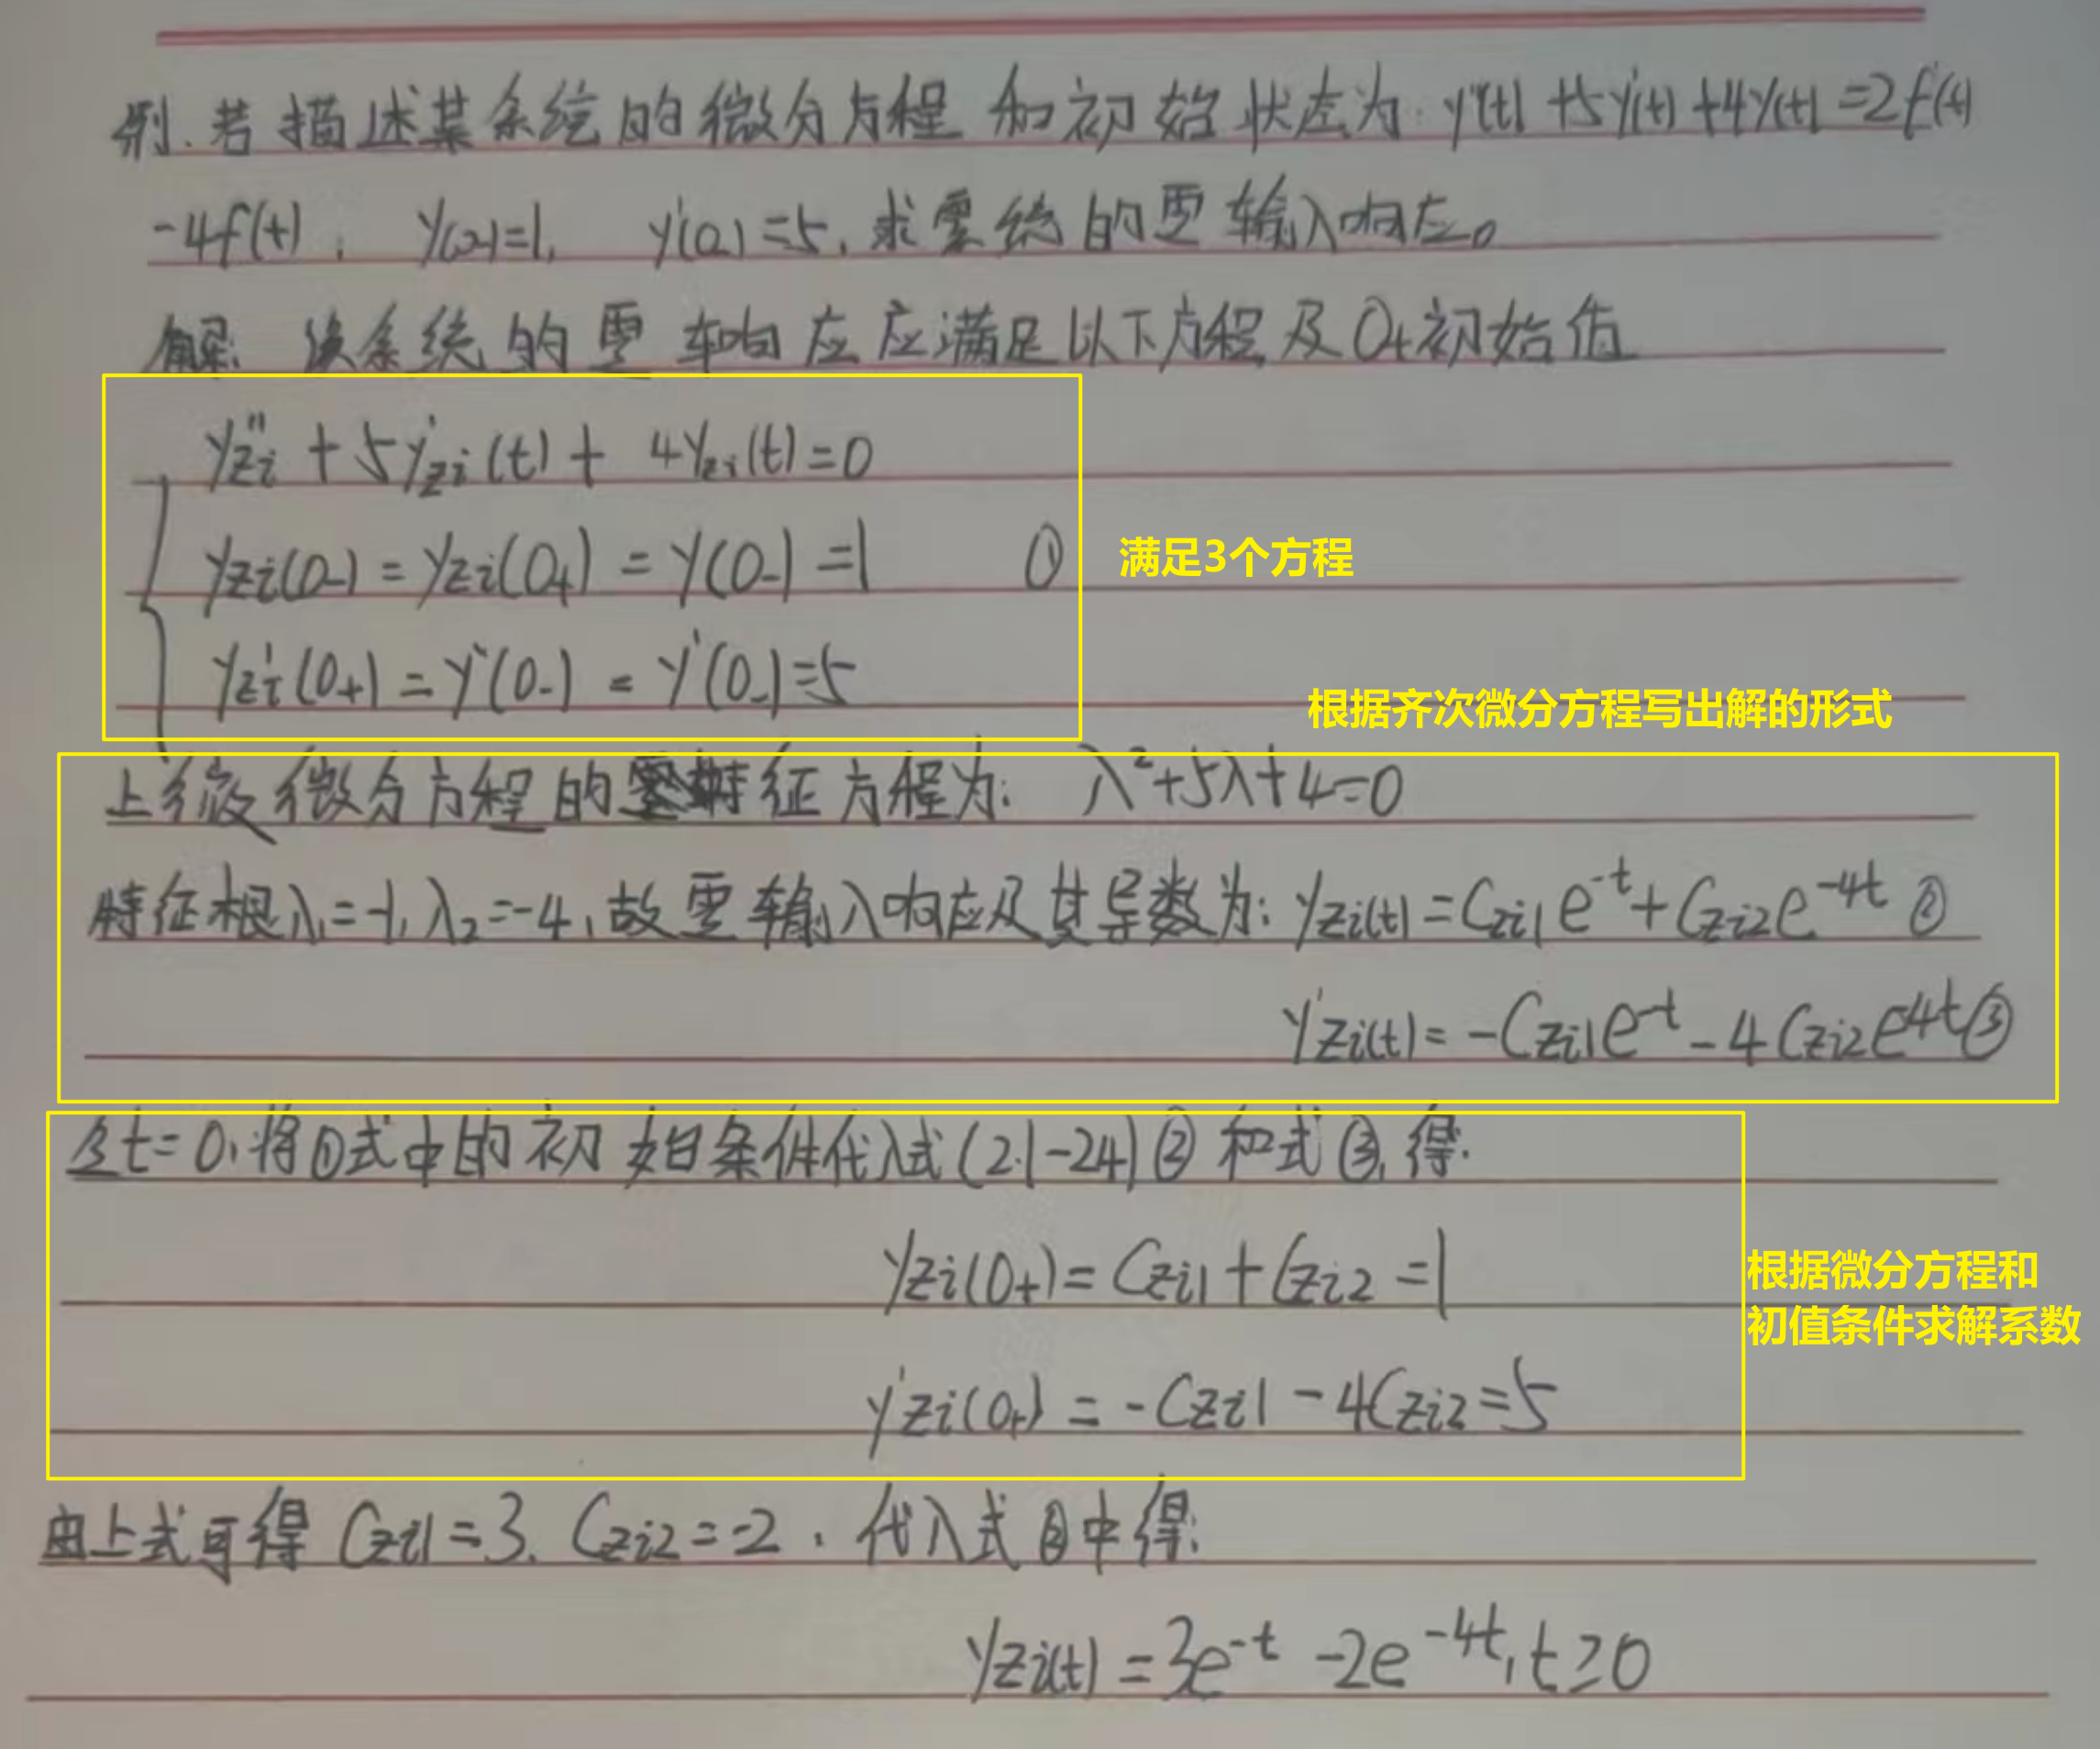 例.若描述某系统的微分方程和初始状态为:y''(t)+5y'(t)+4y(t)=2f'(t)
-4f(t), y(0-)=1, y'(0-)=5,求系统的零输入响应。
解: 该系统的零输响应应满足以下方程及0+初始值
yzi''+5y'zi(t)+4yzi(t)=0
yzi(0-)=yzi(0+)=y(0-)=1 ①
满足3个方程
yzi'(0+)=y'(0-)=y'(0-)=5
根据齐次微分方程写出解的形式
上微分方程的特征方程为: λ²+5λ+4=0
特征根λ₁=-1,λ₂=-4,故零输入响应及其导数为:yzi(t)=Czi1e^-t+Czi2e^-4t ②
y'zi(t)=-Czi1e^-t-4Czi2e^-4t③
令t=0,将①式中的初始条件代入式(2.1-24)②和式③,得:
yzi(0+)=Czi1+Czi2=1
根据微分方程和
初值条件求解系数
y'zi(0+)=-Czi1-4Czi2=5
由上式可得Czi1=3,Czi2=-2,代入式②中得:
yzi(t)=3e^-t-2e^-4t,t≥0